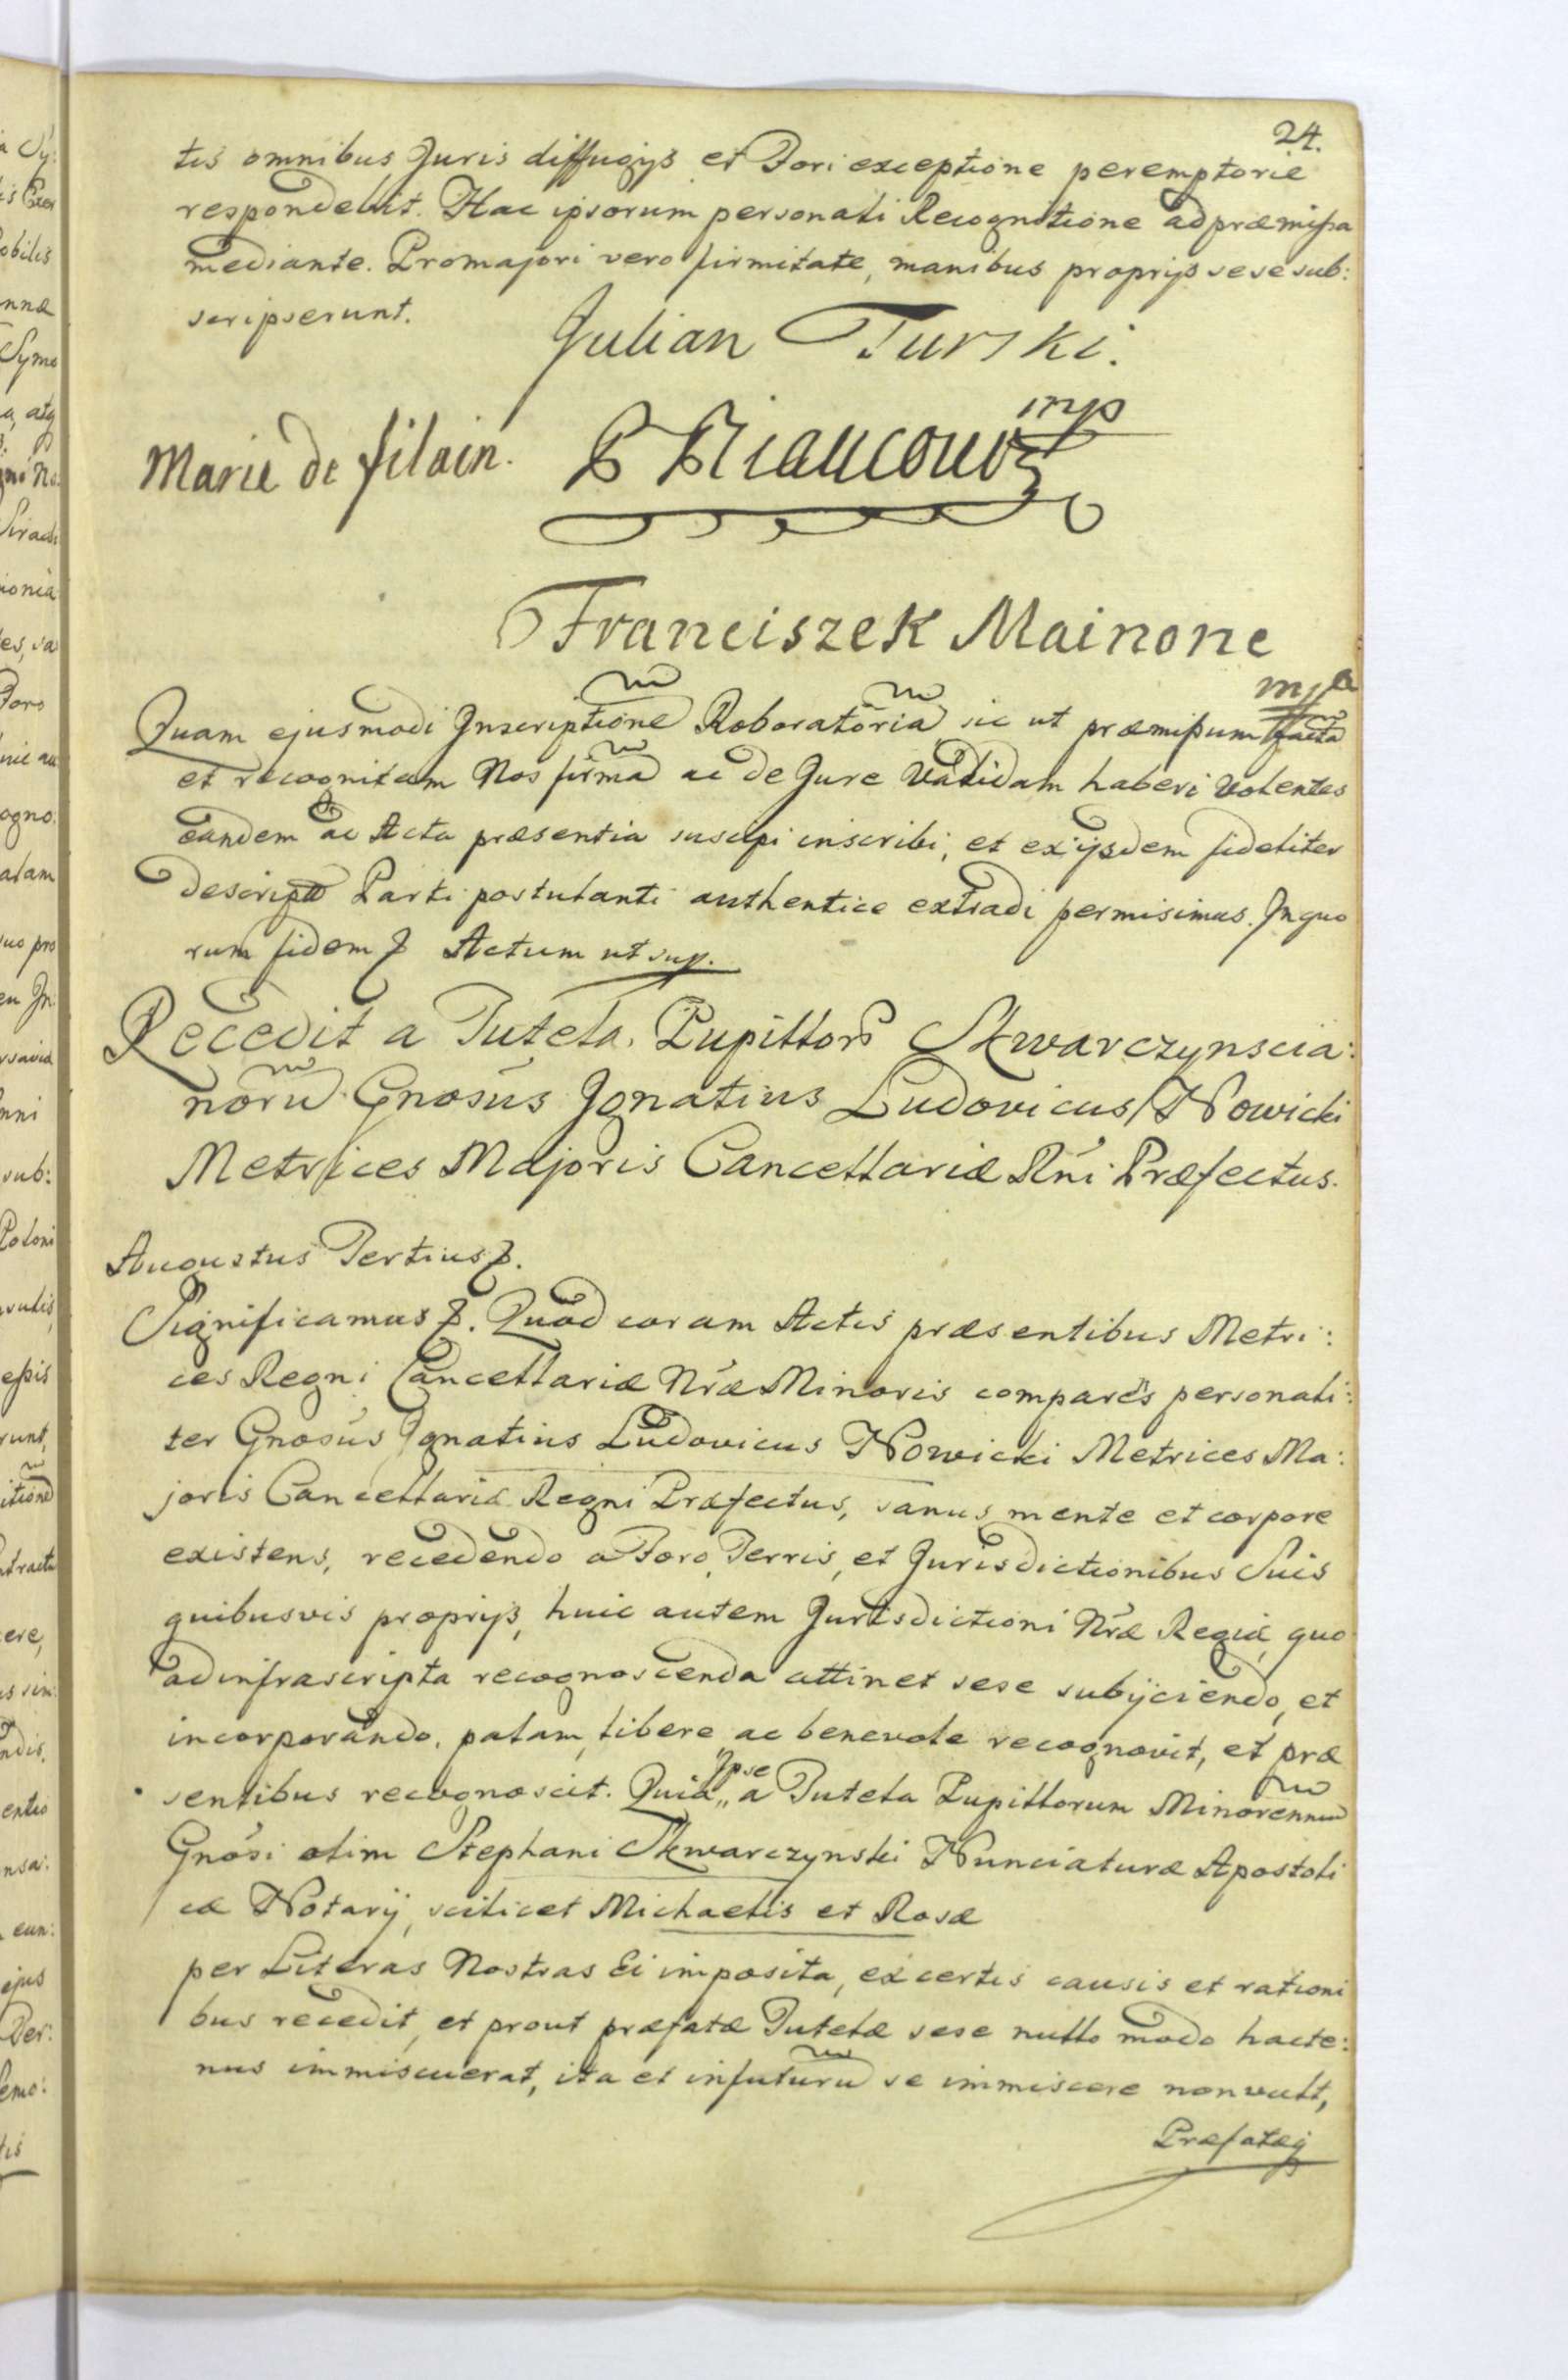 24.
tis omnibus Juris diffugijs et Fori exceptione peremptorie
respondebit. Hac ipsorum personali Recognitione ad præmissa
mediante. Pro majori vero firmitate, manibus proprijs sese sub:
scripserunt.
Julian Turski.
Marie de filain. P Riaucour mp
Franciszek Mainone
mp
Quam ejusmodi Inscriptione Roboratoria sic ut præmissum facta
et recognitam Nos firma ac de Jure Validam haberi Volentes
eandem ac Acta præsentia suscipi inscribi, et ex ijsdem fideliter
descripta Parti postulanti authentice extradi permisimus. In quo
rum fidem Actum ut sup.
Recedit a Tutela Pupillorũ Skwarczynscia:
norũ Gnosus Ignatius Ludovicus Nowicki
Metrices Majoris Cancellariæ Rni Præfectus.
Augustus Tertius
Significamus Quod coram Actis præsentibus Metri:
ces Regni Cancellariæ Nræ Minoris comparẽs personali:
ter Gnosus Ignatius Ludovicus Nowicki Metrices Ma:
joris Cancellariæ Regni Præfectus, sanus mente et corpore
existens, recedendo a Foro, Terris, et Jurisdictionibus Suis
quibusvis proprijs, huic autem Jurisdictioni Nræ Regiæ, quo
ad infrascripta recognoscenda attinet sese subijciendo, et
incorporando, palam, libere ac benevole recognovit, et præ
sentibus recognoscit. Quia Ipse a Tutela Pupillorum Minorennũ
Gnosi olim Stephani Skwarczynski Nunciaturæ Apostoli
cæ Notarij, scilicet Michaelis et Rosæ
per Literas Nostras Ei imposita, ex certis causis et rationi
bus recedit, et prout præfatæ Tutelæ sese nullo modo hacte:
nus immiscuerat, ita et in futurũ se immiscere non vult,
Præfatæq